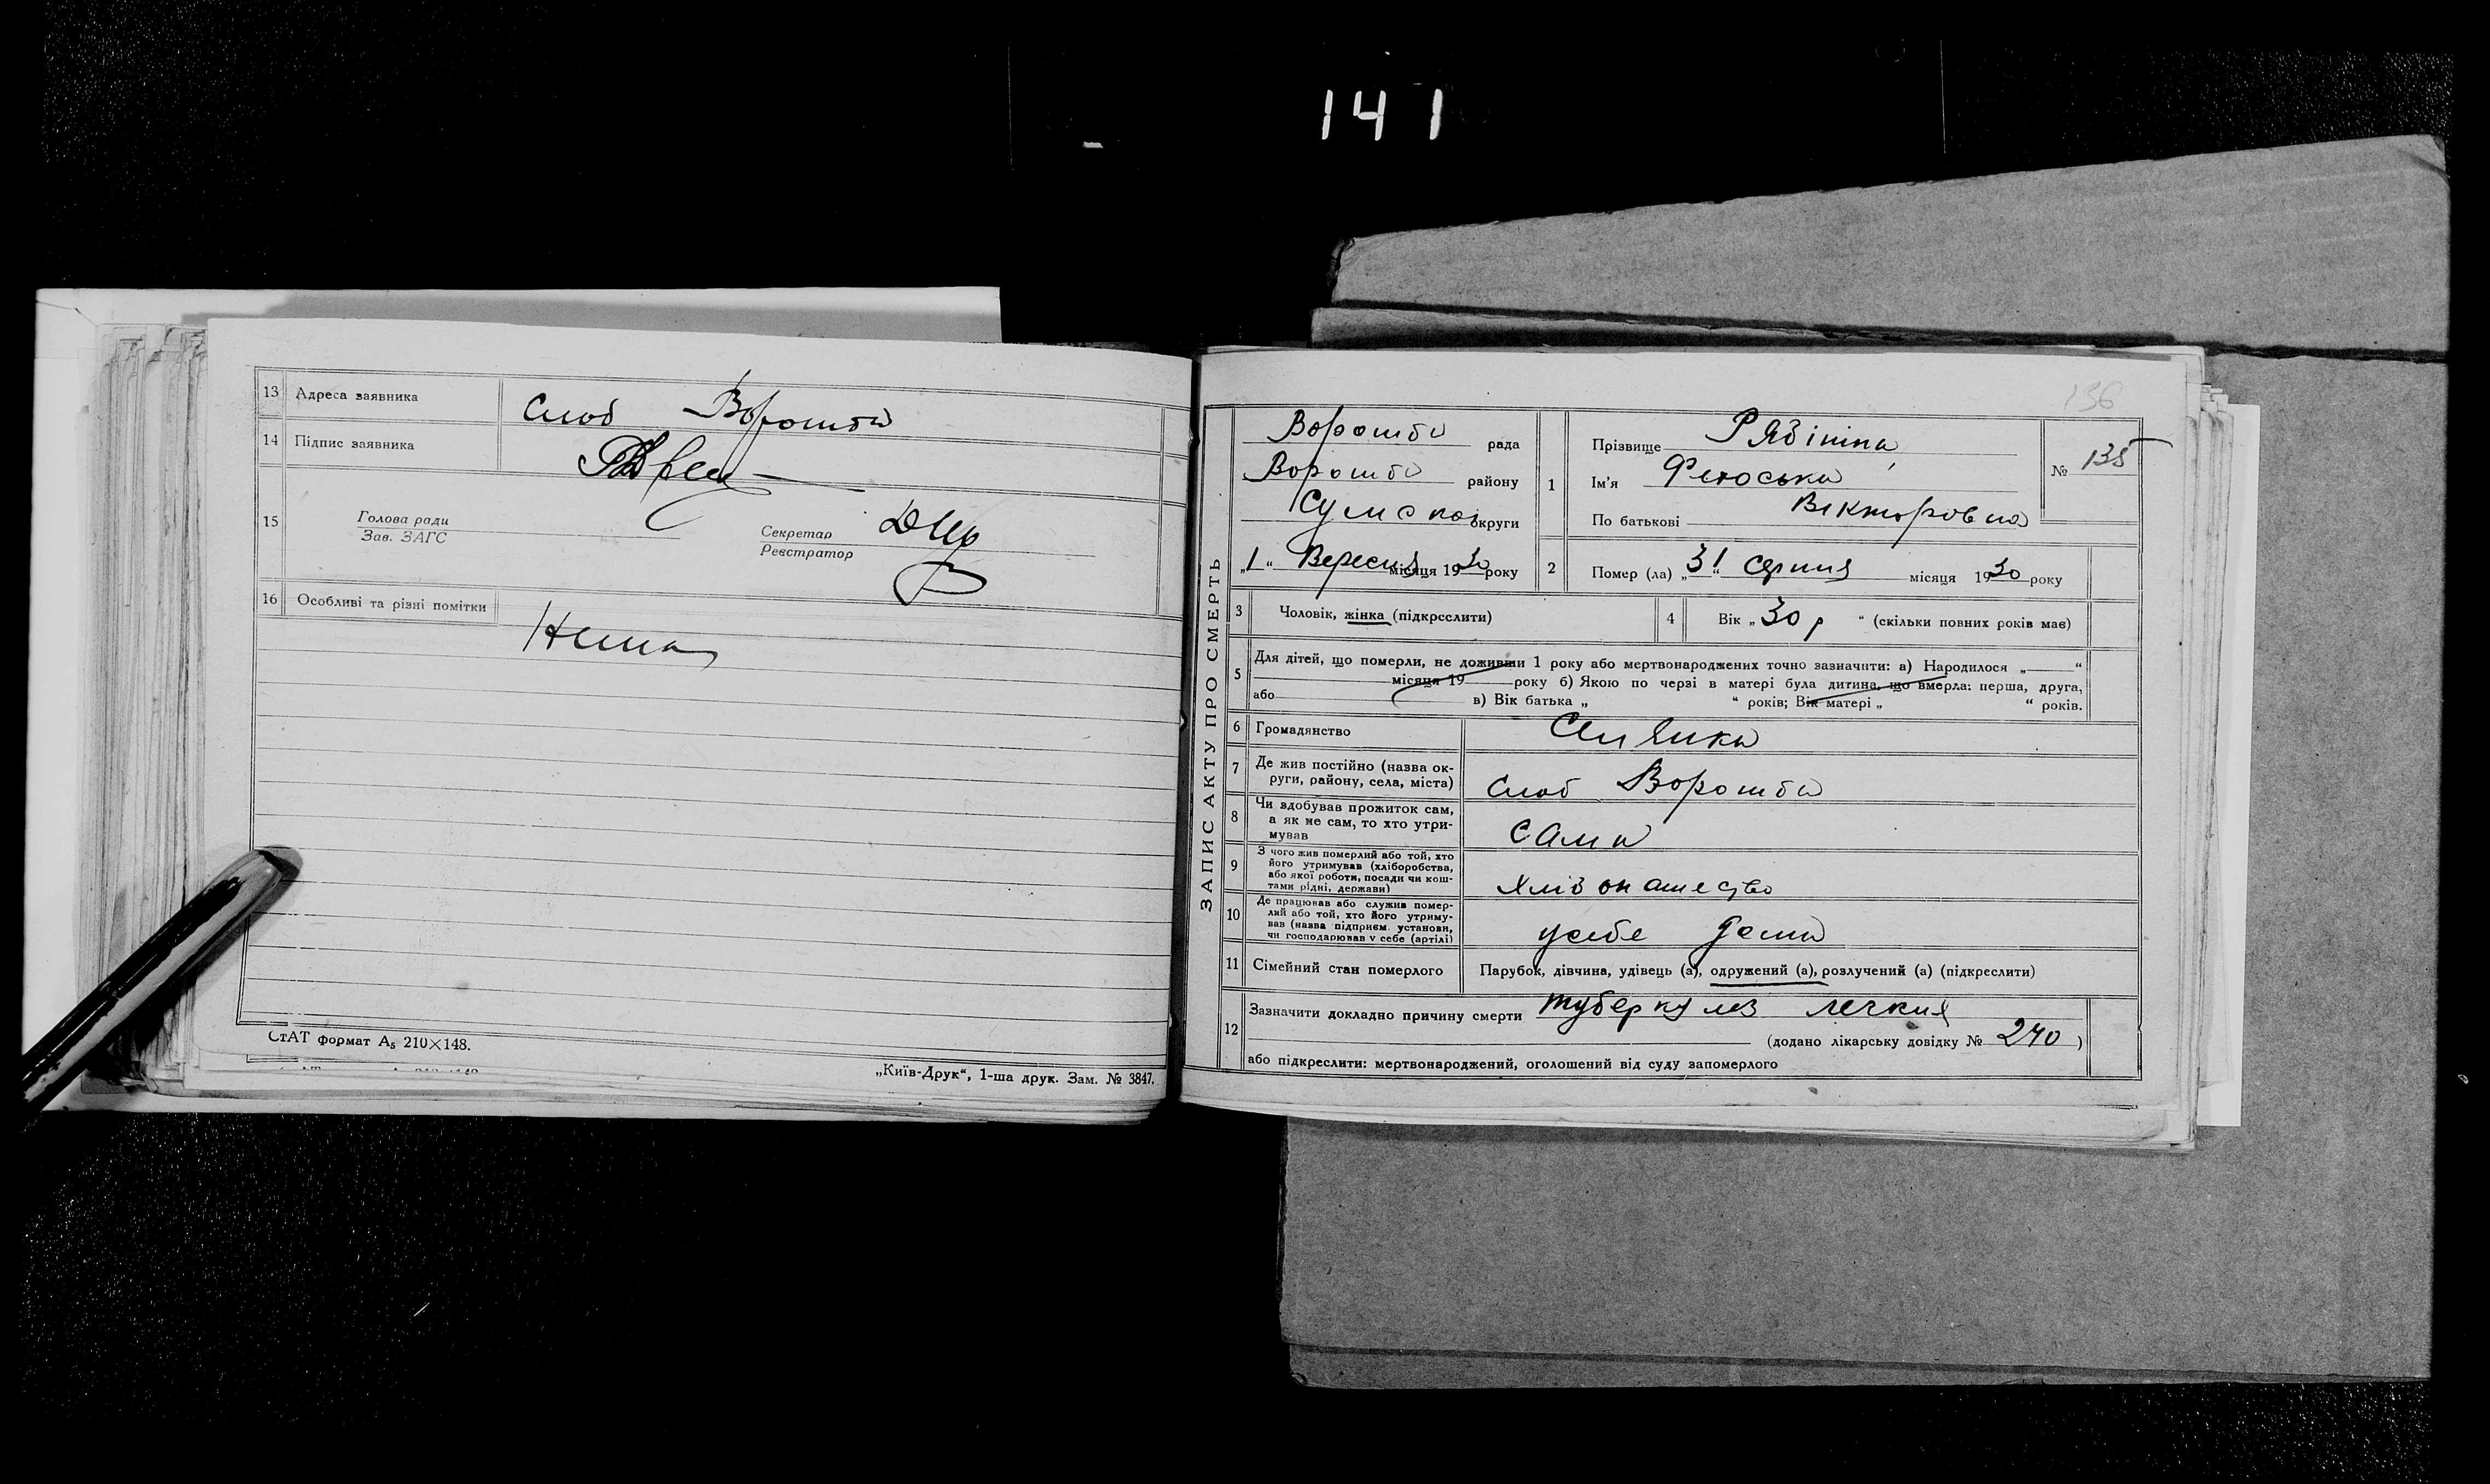 141
13 Адреса заявника Слоб Ворожба
14 Підпис заявника
15 Голова ради
Зав. ЗАГС
Секретар
Реєстратор
16 Особливі та різні помітки
Нема
СтАТ формат А₅ 210×148.
„Київ-Друк“, 1-ша друк. Зам. № 3847.
136
ЗАПИС АКТУ ПРО СМЕРТЬ
Ворожба рада
Ворожба району
Сумска округи
„1“ Вересня місяця 1930 року
1 Прізвище Рябініна
Ім'я Феюська
По батькові Вікторовна
№ 135
2 Помер (ла) „31“ Серпня місяця 1930 року
3 Чоловік, жінка (підкреслити)
4 Вік „30 р“ (скільки повних років має)
5 Для дітей, що померли, не доживши 1 року або мертвонароджених точно зазначити: а) Народилося „ “
місяця 19 року б) Якою по черзі в матері була дитина, що вмерла: перша, друга,
або в) Вік батька „ “ років; Вік матері „ “ років.
6 Громадянство Селянка
7 Де жив постійно (назва ок-
руги, району, села, міста) Слоб Ворожба
8 Чи здобував прожиток сам,
а як не сам, то хто утри-
мував сама
9 З чого жив померлий або той, хто
його утримував (хліборобства,
або якої роботи, посади чи кош-
тами рідні, держави)
10 Де працював або служив помер-
лий або той, хто його утриму-
вав (назва підприєм. установи,
чи господарював у себе (артілі) усебе дома
11 Сімейний стан померлого Парубок, дівчина, удівець (а), одружений (а), розлучений (а) (підкреслити)
12 Зазначити докладно причину смерти туберкулез легких
(додано лікарську довідку № 240)
або підкреслити: мертвонароджений, оголошений від суду запомерлого